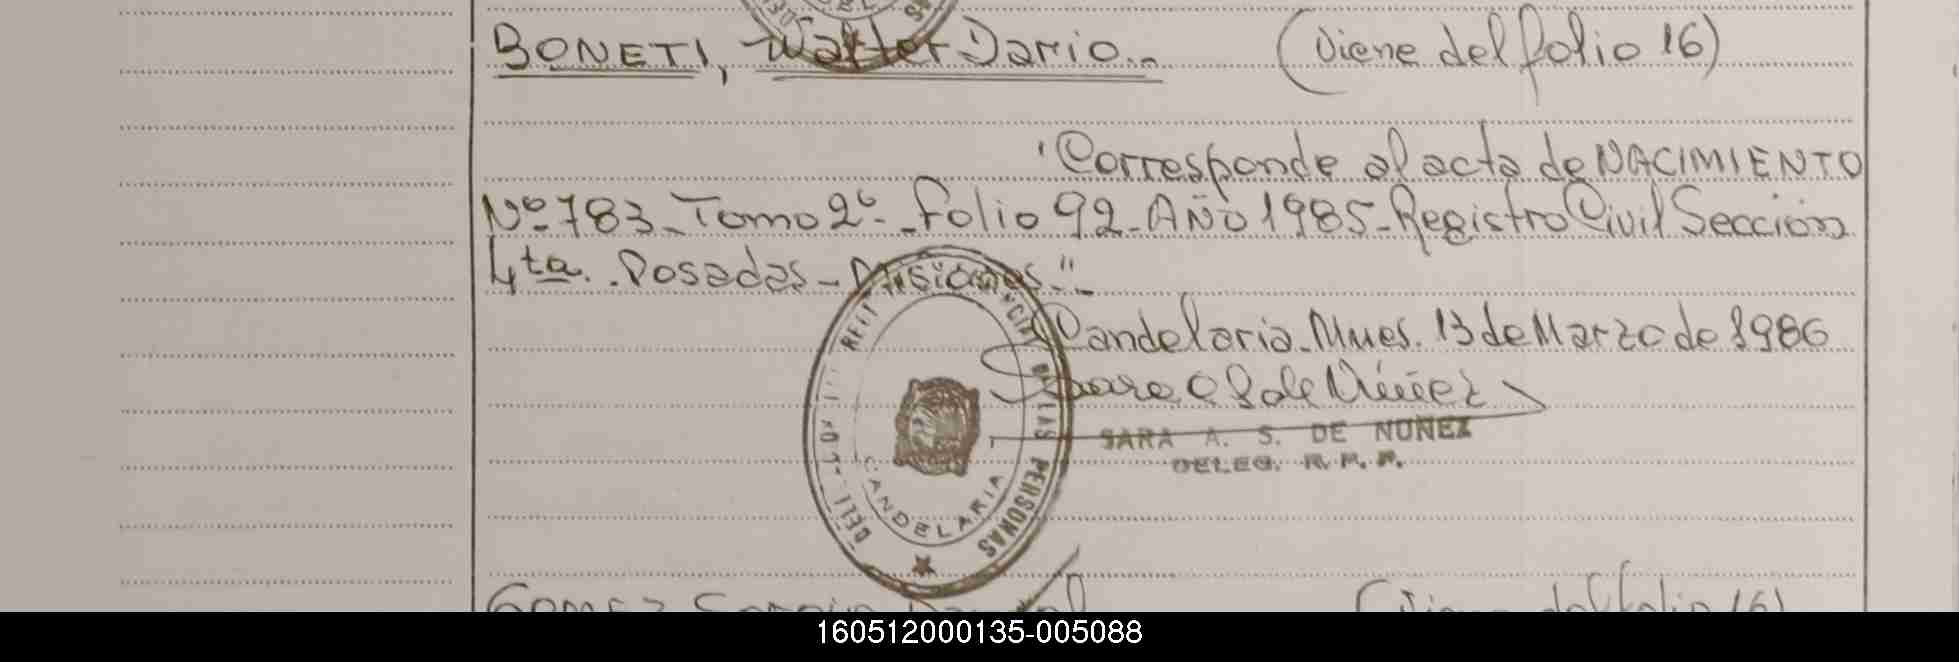 BONETI, Walter Dario.. (Viene del folio 16)
"Corresponde al acta de NACIMIENTO
Nº 783_Tomo 2º-_folio 92_AÑO 1985_Registro Civil Sección
4ta. Posadas_Misiones"_
Candelaria_Mnes. 13 de Marzo de 1986
SARA A. S. DE NUÑEZ
DELEG. R. P. P.
DE LAS PERSONAS
CANDELARIA
(Viene del folio 16)
160512000135-005088